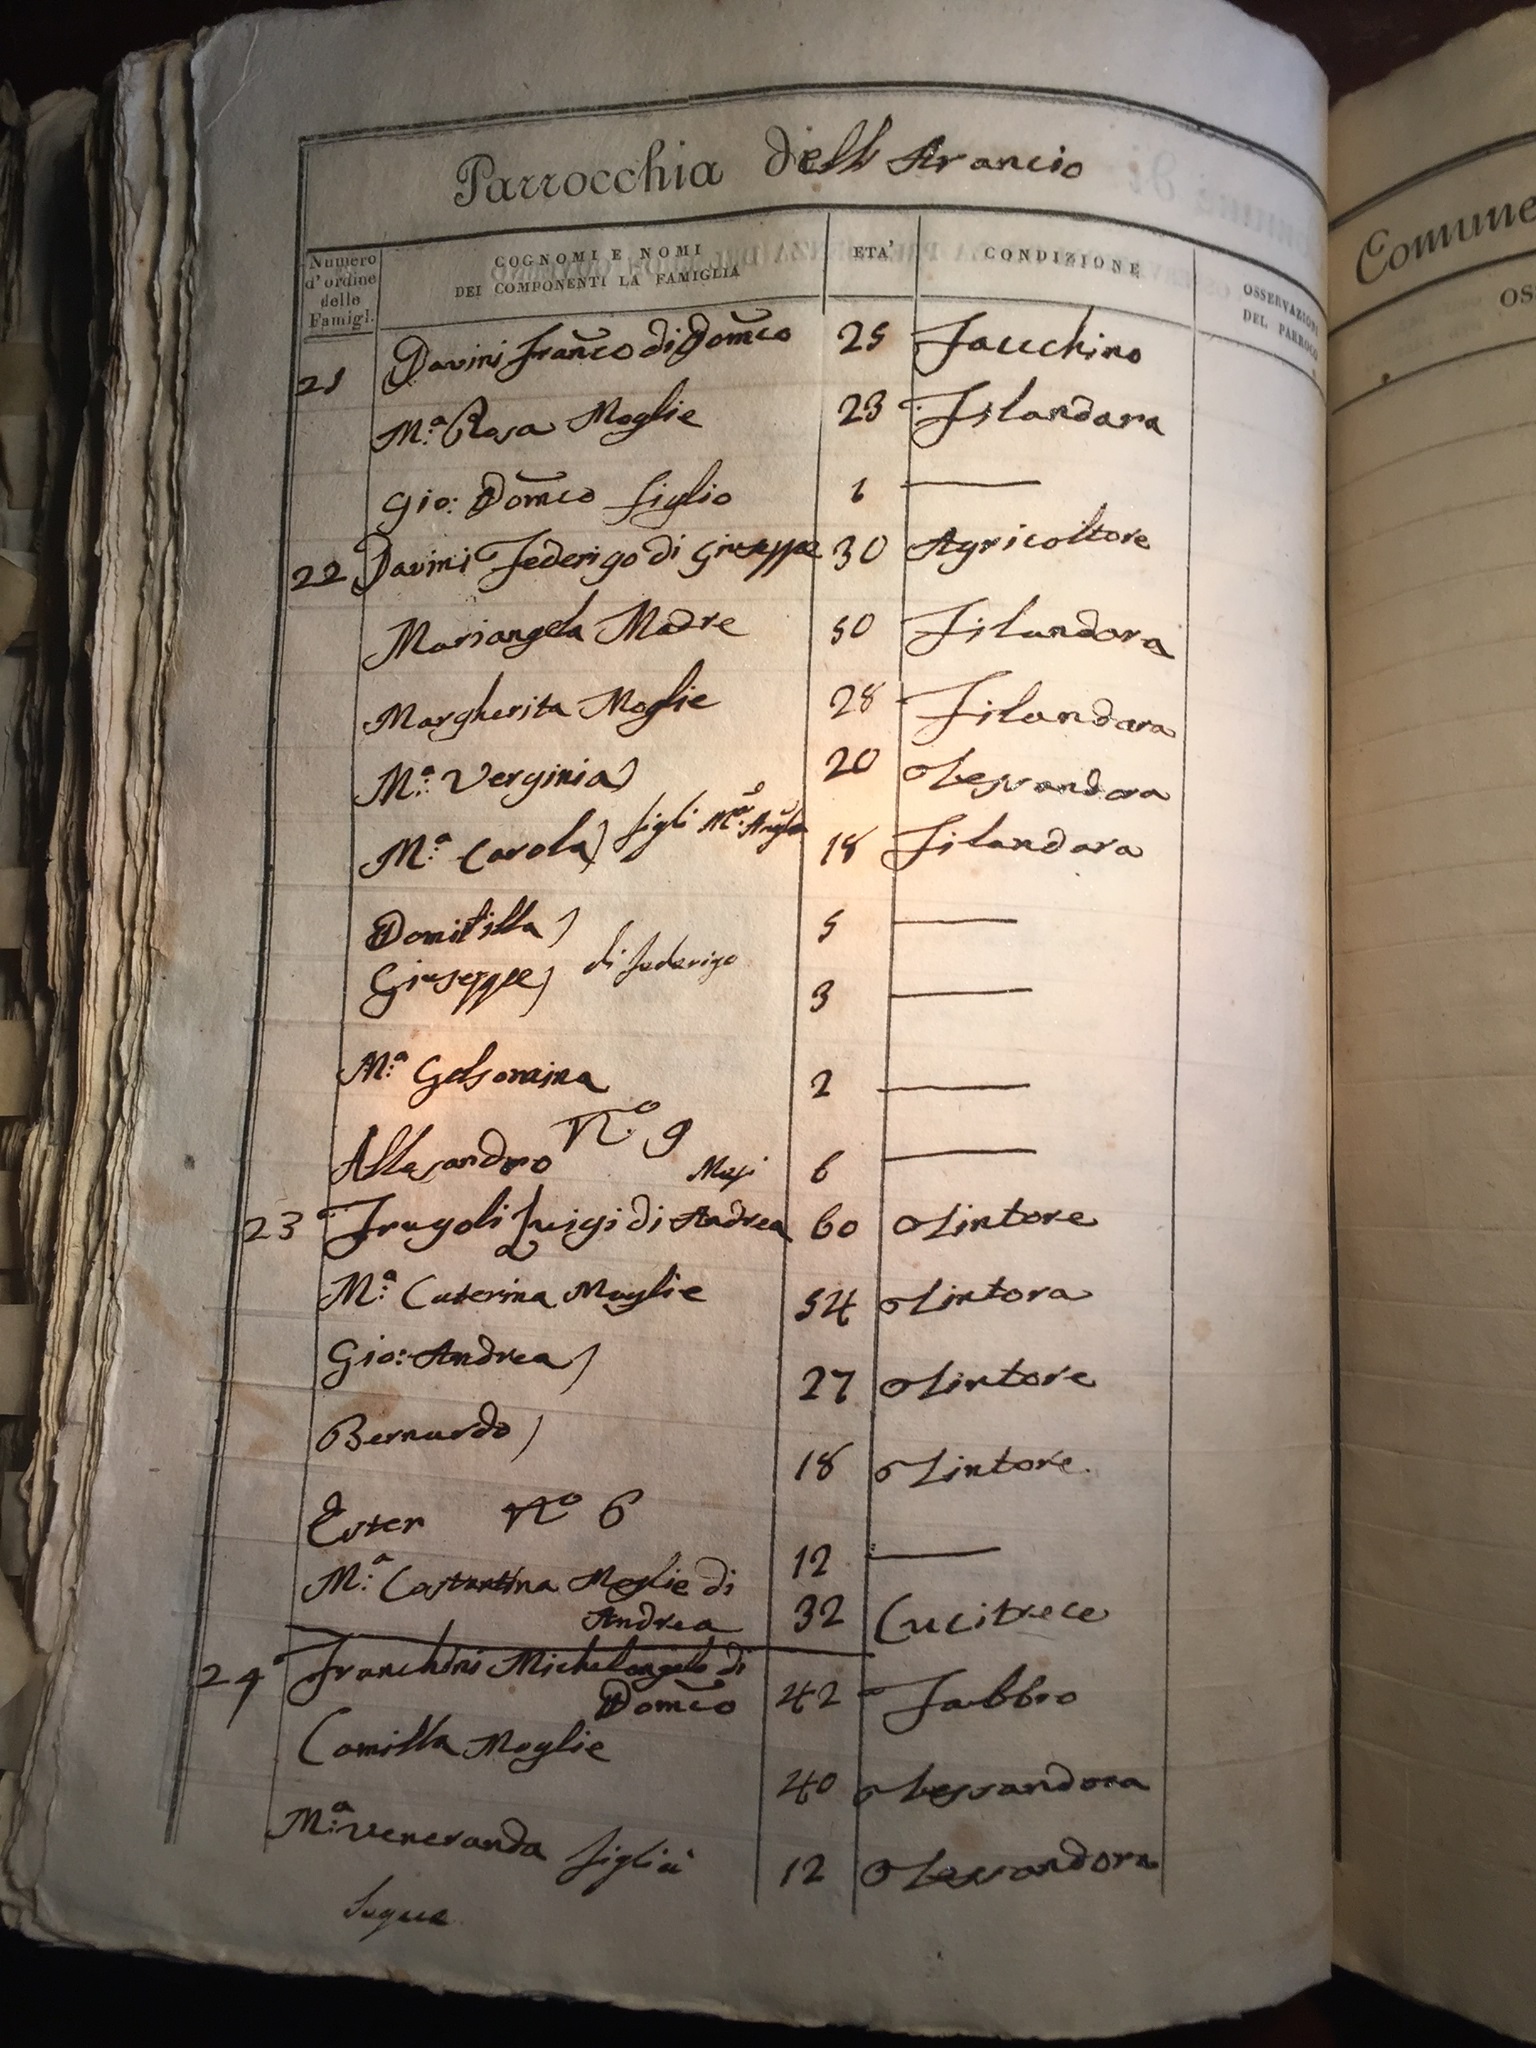 Parrocchia dell Arancio
Numero d'ordine delle Famigl.
COGNOMI E NOMI DEI COMPONENTI LA FAMIGLIA
ETA'
CONDIZIONE
OSSERVAZIONI DEL PARROCO
21 Davini Franco di Domco 25 Facchino
M.a Rosa Moglie 23 Filandara
Gio: Domco figlio 1
22 Davini Federigo di Giuseppe 30 Agricoltore
Mariangela Madre 50 Filandara
Margherita Moglie 28 Filandara
M.a Verginia) 20 Tessandora
M.a Carola) figli M.a Angla 18 Filandara
Domitilla) 5
Giuseppe) di Federigo 3
M.a Gelsomina 2
Allesandro N.o 9 Mesi 6
23 Frugoli Luigi di Andrea 60 Tintore
M.a Caterina Moglie 54 Tintora
Gio: Andrea) 27 Tintore
Bernardo) 18 Tintore.
Ester No 6 12
M.a Costantina Moglie di
Andrea 32 Cucitrece
24 Franchini Michelangelo di
Domco 42 Fabbro
Camilla Moglie 40 Tessandora
M.a Veneranda figlia 12 Tessandora
Segue
Comune
OS